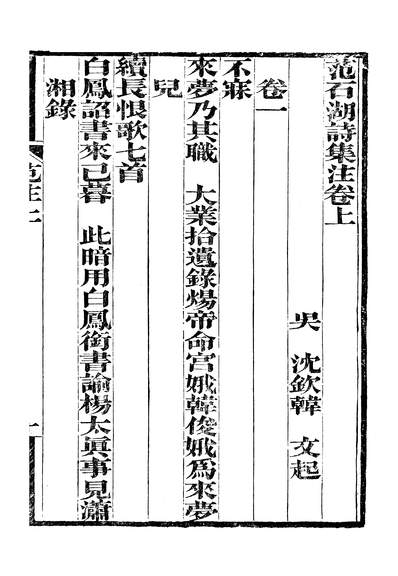 范石湖詩集注卷上
吳 沈欽韓 文起
卷一
不寐
來夢乃其職 大業拾遺錄煬帝命宮娥韓俊娥爲來夢
兒
續長恨歌七首
白鳳詔書來已暮 此暗用白鳳銜書諭楊太眞事見瀟
湘錄
范注上 一